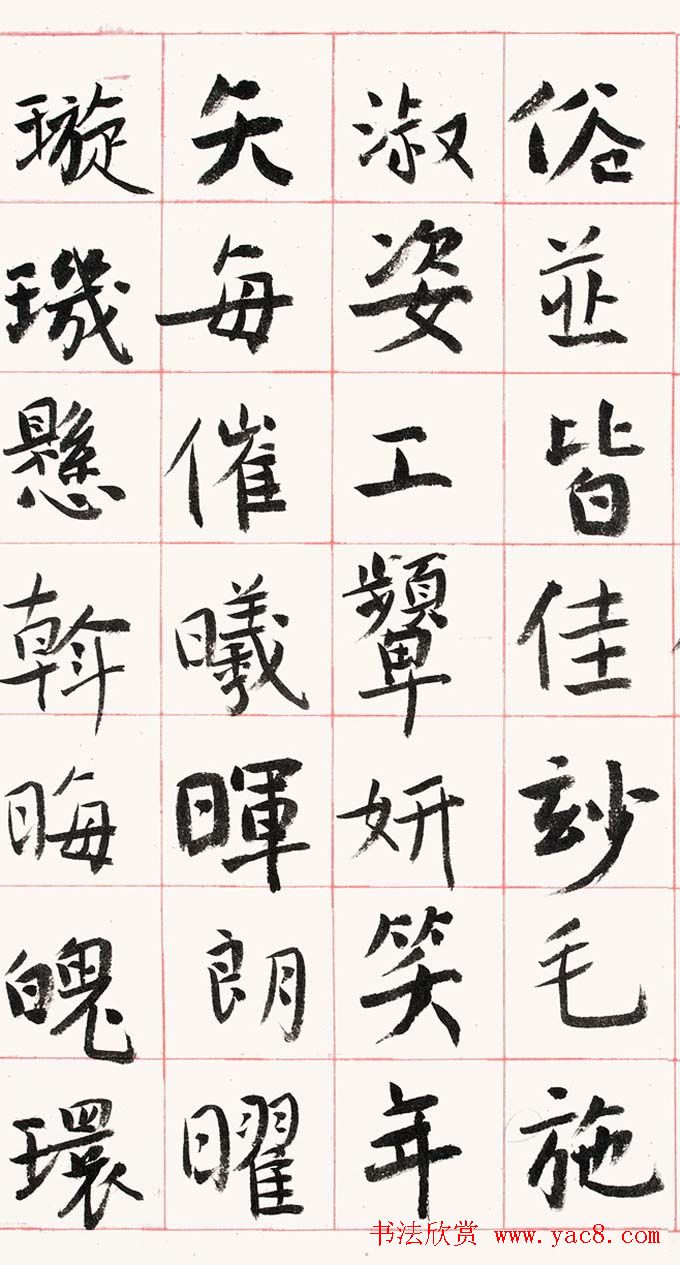 俗並皆佳玅毛施
淑姿工顰妍笑年
矢每催曦暉朗曜
璇璣懸斡晦魄環
书法欣赏 www.yac8.com